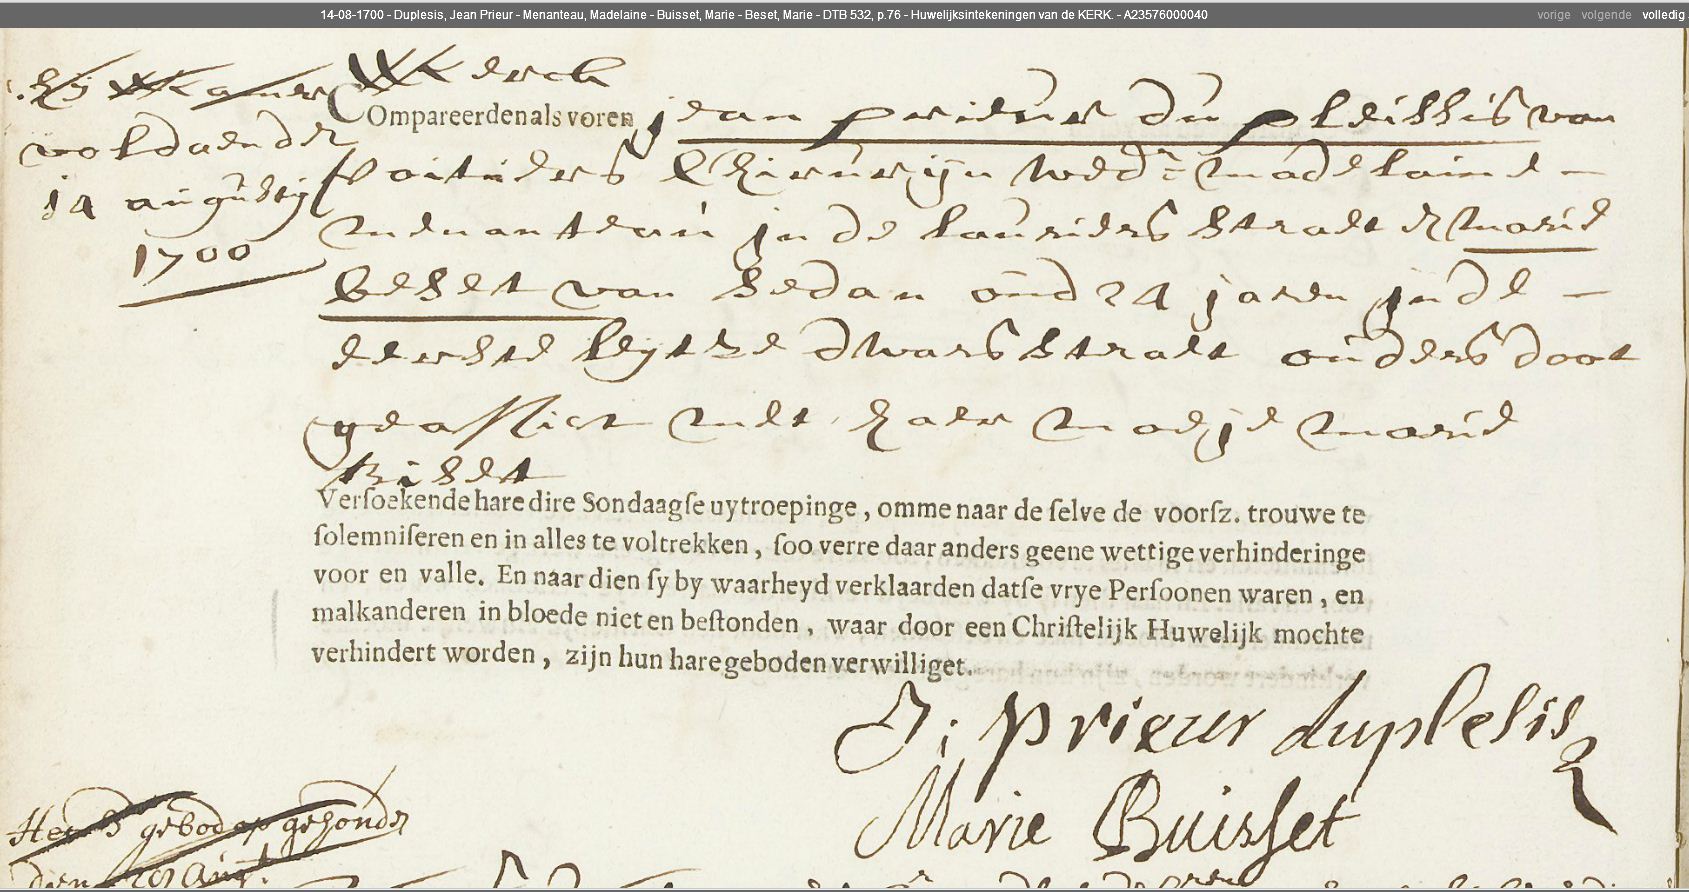 14-08-1700 - Duplesis, Jean Prieur - Menanteau, Madelaine - Buisset, Marie - Beset, Marie - DTB 532, p.76 - Huwelijksintekeningen van de KERK. - A23576000040
vorige volgende volledig
Kerck
Compareerden als voren jean prieur du pleissis van
Poitiers Chirurgijn wedr: madelaine
menanteau in de lauriers straet & marie
beset van sedan oud 24 jaren in de
eerste leytse dwars straet ouders doot
geassist met haer moeje marie
biset
voldaen den
14 augustij
1700
Versoekende hare dire Sondaagse uytroepinge, omme naar de selve de voorsz. trouwe te
solemniseren en in alles te voltrekken, soo verre daar anders geene wettige verhinderinge
voor en valle. En naar dien sy by waarheyd verklaarden datse vrye Persoonen waren, en
malkanderen in bloede niet en bestonden, waar door een Christelijk Huwelijk mochte
verhindert worden, zijn hun hare geboden verwilliget.
J: prieur duplesis
Marie Buisset
gebod op
den 29 Augt.